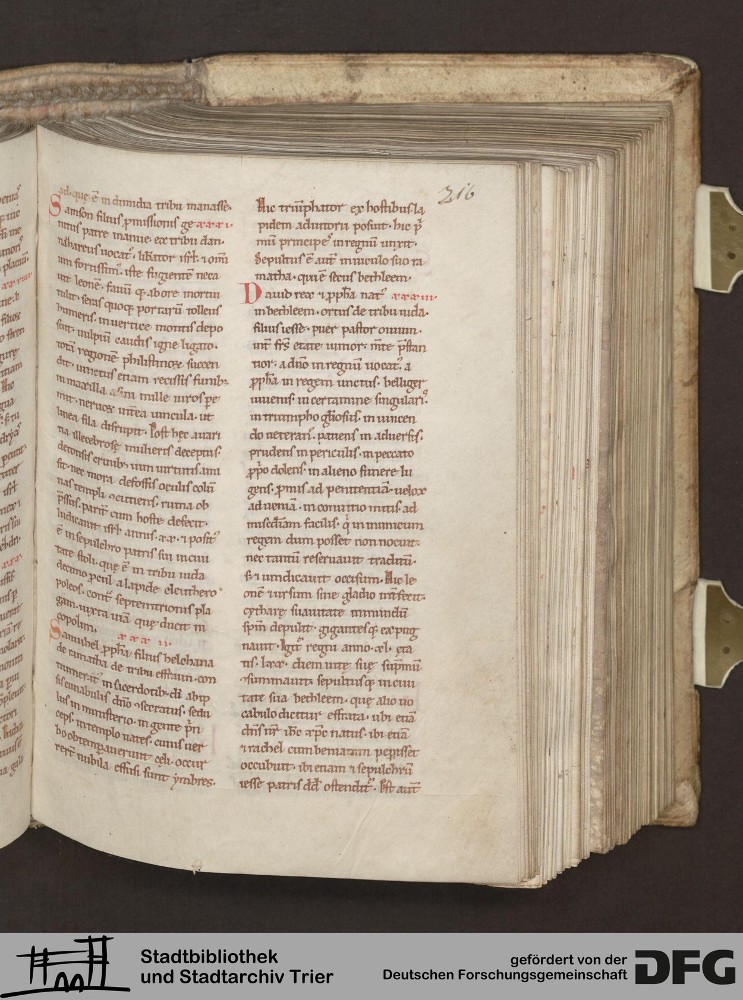 216
sad. que ē in dimidia tribu manasse.
Samson filius ꝓmissionis ge xxxi.
nitus patre manue. ex tribu dan.
nazareus uocat᷒. liƀator isrł. ⁊ om̄
um fortissim᷒. iste fugientē neca
uit leonē. fauū q̨ ab ore mortui
tulit. seras quoq̨ portarū tollens
humeris. in uertice montis depo
suit. uulpiū caudis igne ligato.
totā regionē philistinoꝝ succen
dit. uinctus etiam recissis funib᷒
in maxilla asini mille uiros pe
remit. neruos
linea fila disrupit. Post hec auari
na illecebrosę mulieris deceptus.
detonsis crinib᷒ uim uirtutis ami
sit. nec mora defossis oculis colū
nas templi ꝯcutiens. ruina ob
p̄ssus. parit̄ cum hoste defecit.
Iudicauit isrł annis. xx. ⁊ posit᷒
ē in sepulchro patris sui in ciui
tate que ē in tribu iuda
decimo a lapide eleuthero
poleos. cont᷒ septentrionis pla
gam. iuxta uiā que ducit in
copolim. xxxii.
Samuhel ꝓph̄a. filius helchana
de ramatha de tribu effraim. con
numer᷒ in sacerdotib᷒ dī ab ip
sis cunabulis dn̄o ꝯsecratus. sedu
lus in ministerio. in gente p̄n
ceps. in templo uates. cuius uer
bo obtemꝑauerunt cęli. occur
rerūt nubila. effusi sunt ymbres.
Hic triūphator ex hostibus la
pidem adiutorii posuit. hic p̄
mū principes in regnū unxit.
Sepultus ē aut̄ in uiculo suo ra
matha. qui ē secus bethleem.
Dauid rex ⁊ ꝓph̄a nat᷒ xxxiii.
in bethleem. ortus de tribu iuda.
filius iesse. puer pastor ouium.
int̄ fr̄s etate iunior. m̄te p̄stan
tior. a dn̄o in regnū uocat᷒. a
ꝓph̄a in regem unctus. belliger
iuuenis in certamine singulari.
in triumpho gl̄iosus. in uincen
do ueterani. patiens in aduersis.
prudens in periculis. in peccato
ꝓp̄o dolens. in alieno funere lu
gens. p̄mus ad penitentiā. uelox
ad ueniā. in conuitio mitis. ad
misc̄diam facilis. q̄ in inimicum
regem dum posset non nocuit.
nec tantū reseruauit traditū.
sꝫ ⁊ uindicauit occisum. Hic le
onē ⁊ ursum sine gladio int̄fecit.
cytharę suauitate inmundū
sp̄m depulit. gigantesq̨ expug
nauit. regni anno. xl. eta
tis. lxx. diem uite sue sup̄mū
ꝯsummauit. sepultusq̨ in ciui
tate sua bethleem. que alio uo
cabulo dicitur effrata. ubi etiā
dn̄s nr̄ ih̄c xp̄c natus. ubi etiā
⁊ rachel cum beniamin peꝑisset
occubuit. ibi etiam ⁊ sepulchrū
iesse patris dd̄ ostendit᷒. Est aut̄
Stadtbibliothek
und Stadtarchiv Trier
gefördert von der
Deutschen Forschungsgemeinschaft
DFG